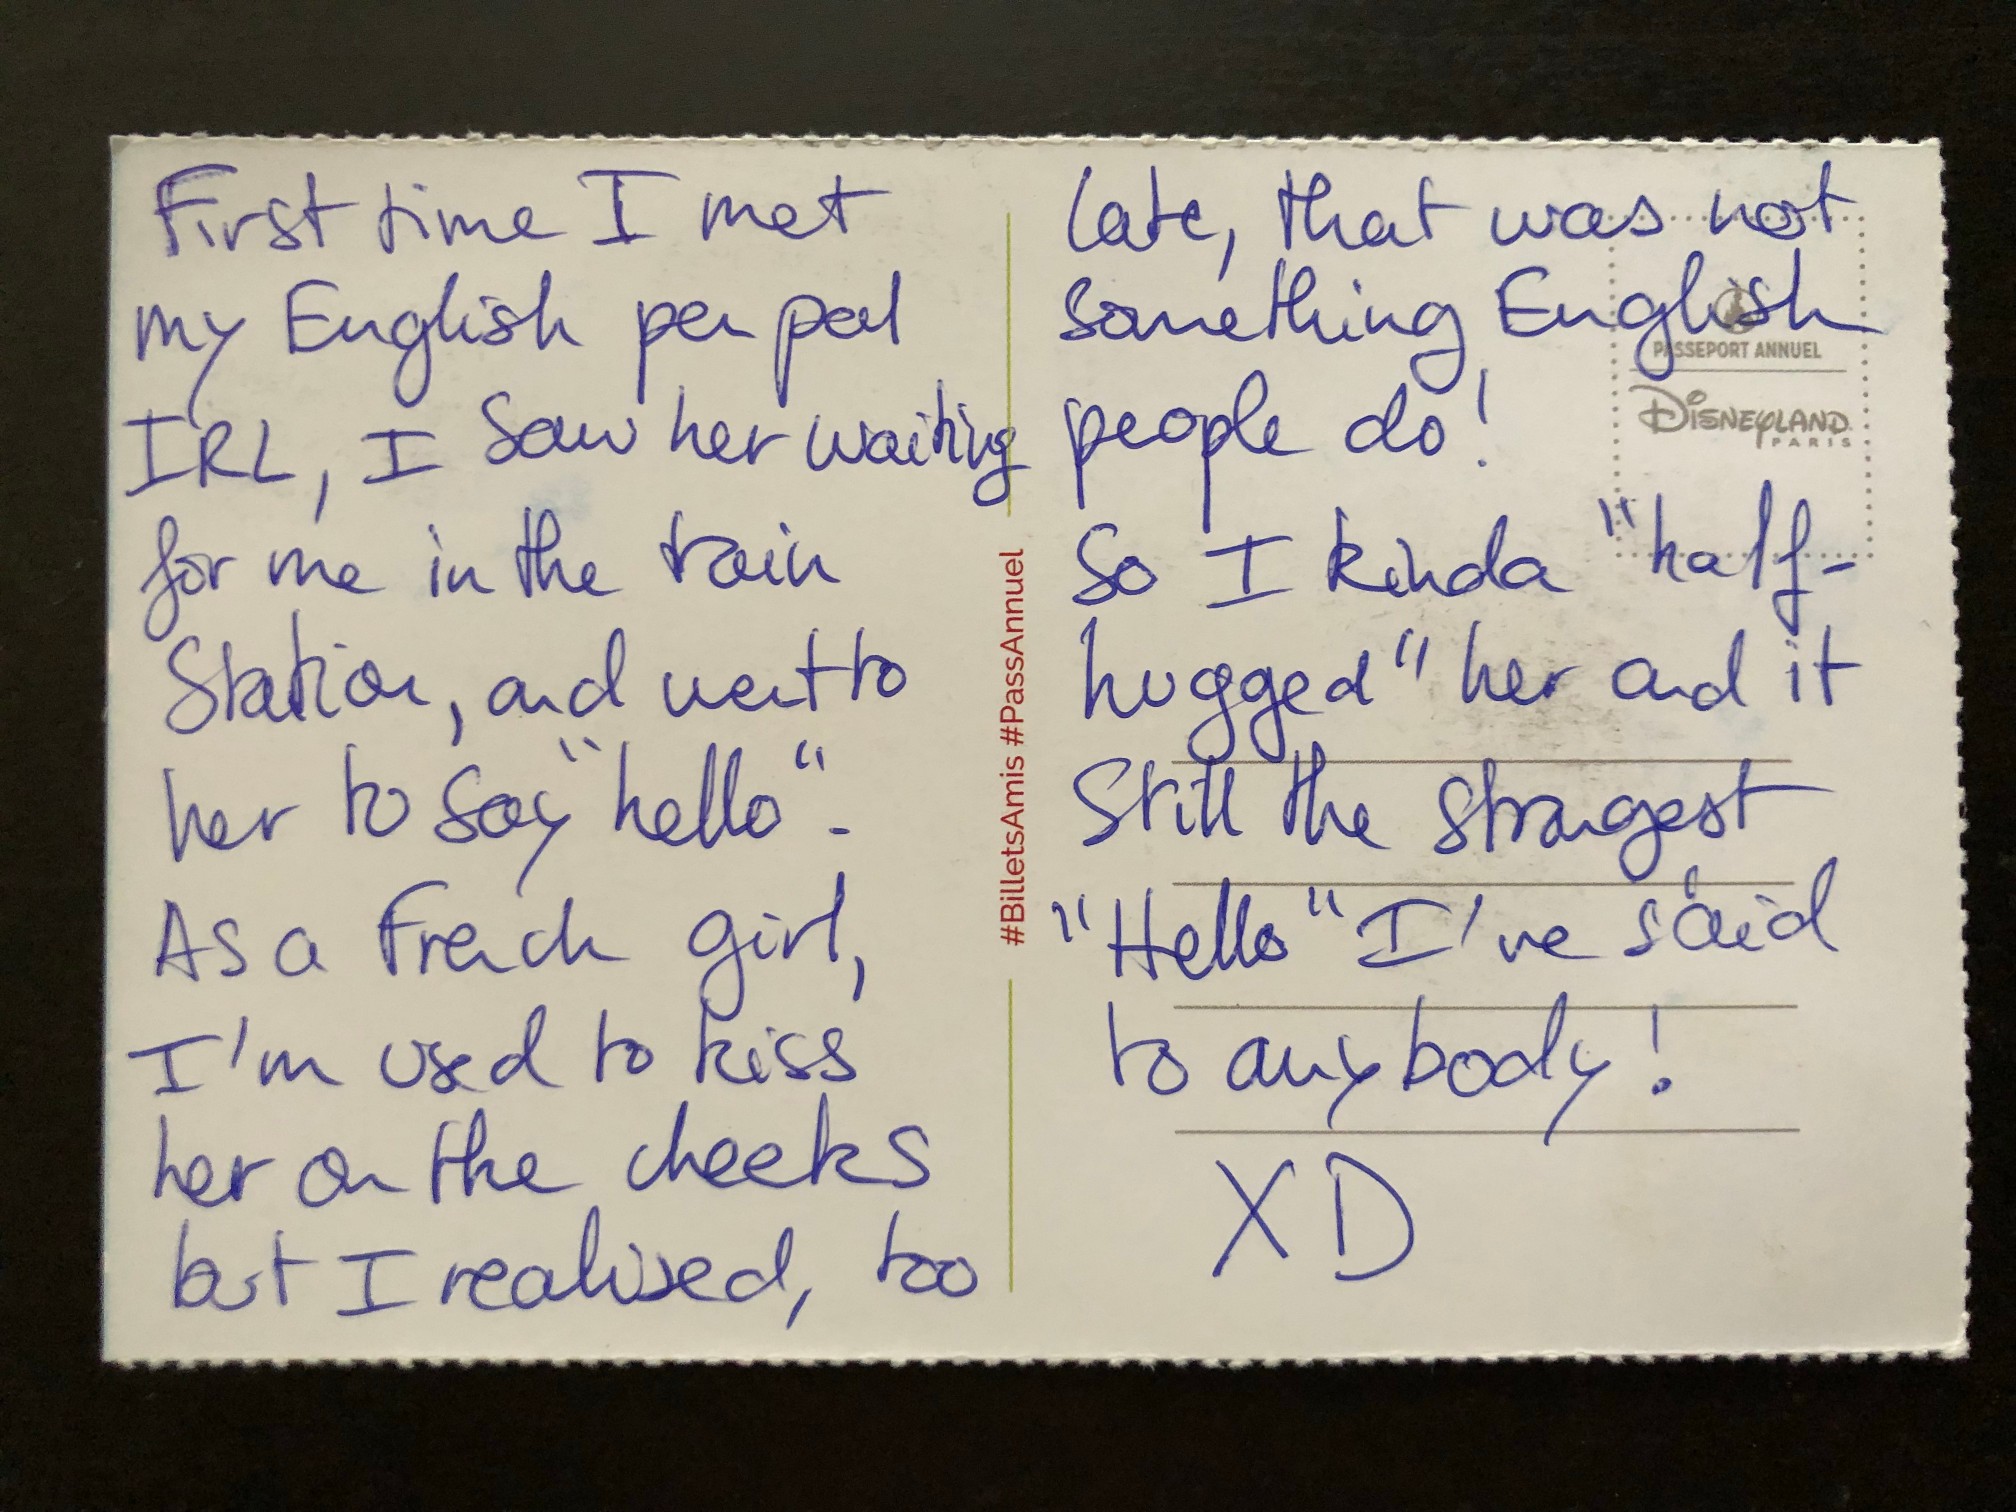 First time I met
my English pen pal
IRL, I saw her waiting
for me in the train
Station, and went to
her to say "hello".
As a French girl,
I'm used to kiss
her on the cheeks
but I realised, too
late, that was not
something English
people do!
So I kinda "half-
hugged" her and it
Still the strangest
"Hello" I've said
to anybody!
XD
#BilletsAmis #PassAnnuel
PASSEPORT ANNUEL
DISNEYLAND
PARIS